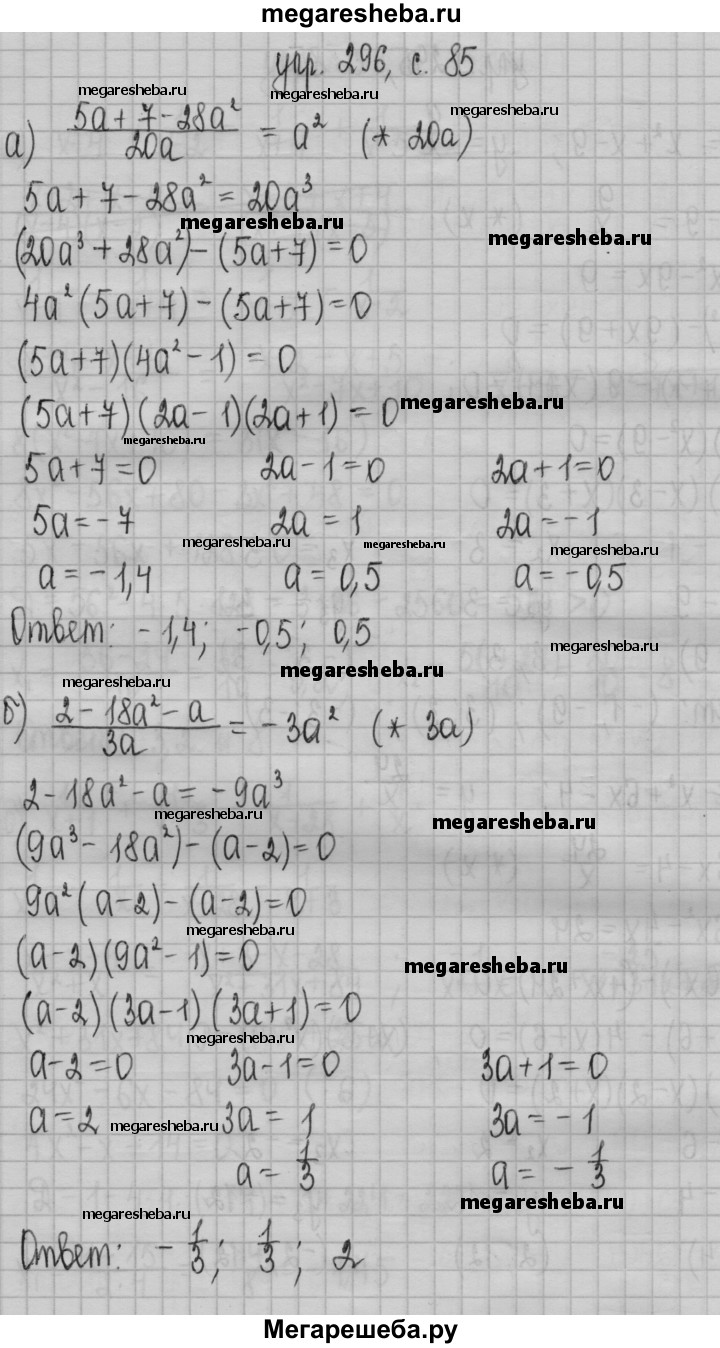 megaresheba.ru
упр. 296, с. 85
megaresheba.ru megaresheba.ru megaresheba.ru
а) (5a + 7 - 28a²)/(20a) = a² (* 20a)
5a + 7 - 28a² = 20a³
megaresheba.ru megaresheba.ru
(20a³ + 28a²) - (5a + 7) = 0
4a² (5a + 7) - (5a + 7) = 0
(5a + 7)(4a² - 1) = 0
(5a + 7)(2a - 1)(2a + 1) = 0 megaresheba.ru
megaresheba.ru
5a + 7 = 0 2a - 1 = 0 2a + 1 = 0
5a = - 7 2a = 1 2a = - 1
megaresheba.ru megaresheba.ru megaresheba.ru
a = - 1,4 a = 0,5 a = - 0,5
Ответ: - 1,4; - 0,5; 0,5
megaresheba.ru megaresheba.ru
megaresheba.ru
б) (2 - 18a² - a)/(3a) = - 3a² (* 3a)
2 - 18a² - a = - 9a³
megaresheba.ru megaresheba.ru
(9a³ - 18a²) - (a - 2) = 0
9a² (a - 2) - (a - 2) = 0
megaresheba.ru
(a - 2)(9a² - 1) = 0 megaresheba.ru
(a - 2)(3a - 1)(3a + 1) = 0
megaresheba.ru
a - 2 = 0 3a - 1 = 0 3a + 1 = 0
a = 2 megaresheba.ru 3a = 1 3a = - 1
a = 1/3 a = - 1/3
megaresheba.ru megaresheba.ru
Ответ: - 1/3; 1/3; 2
Мегарешеба.ру